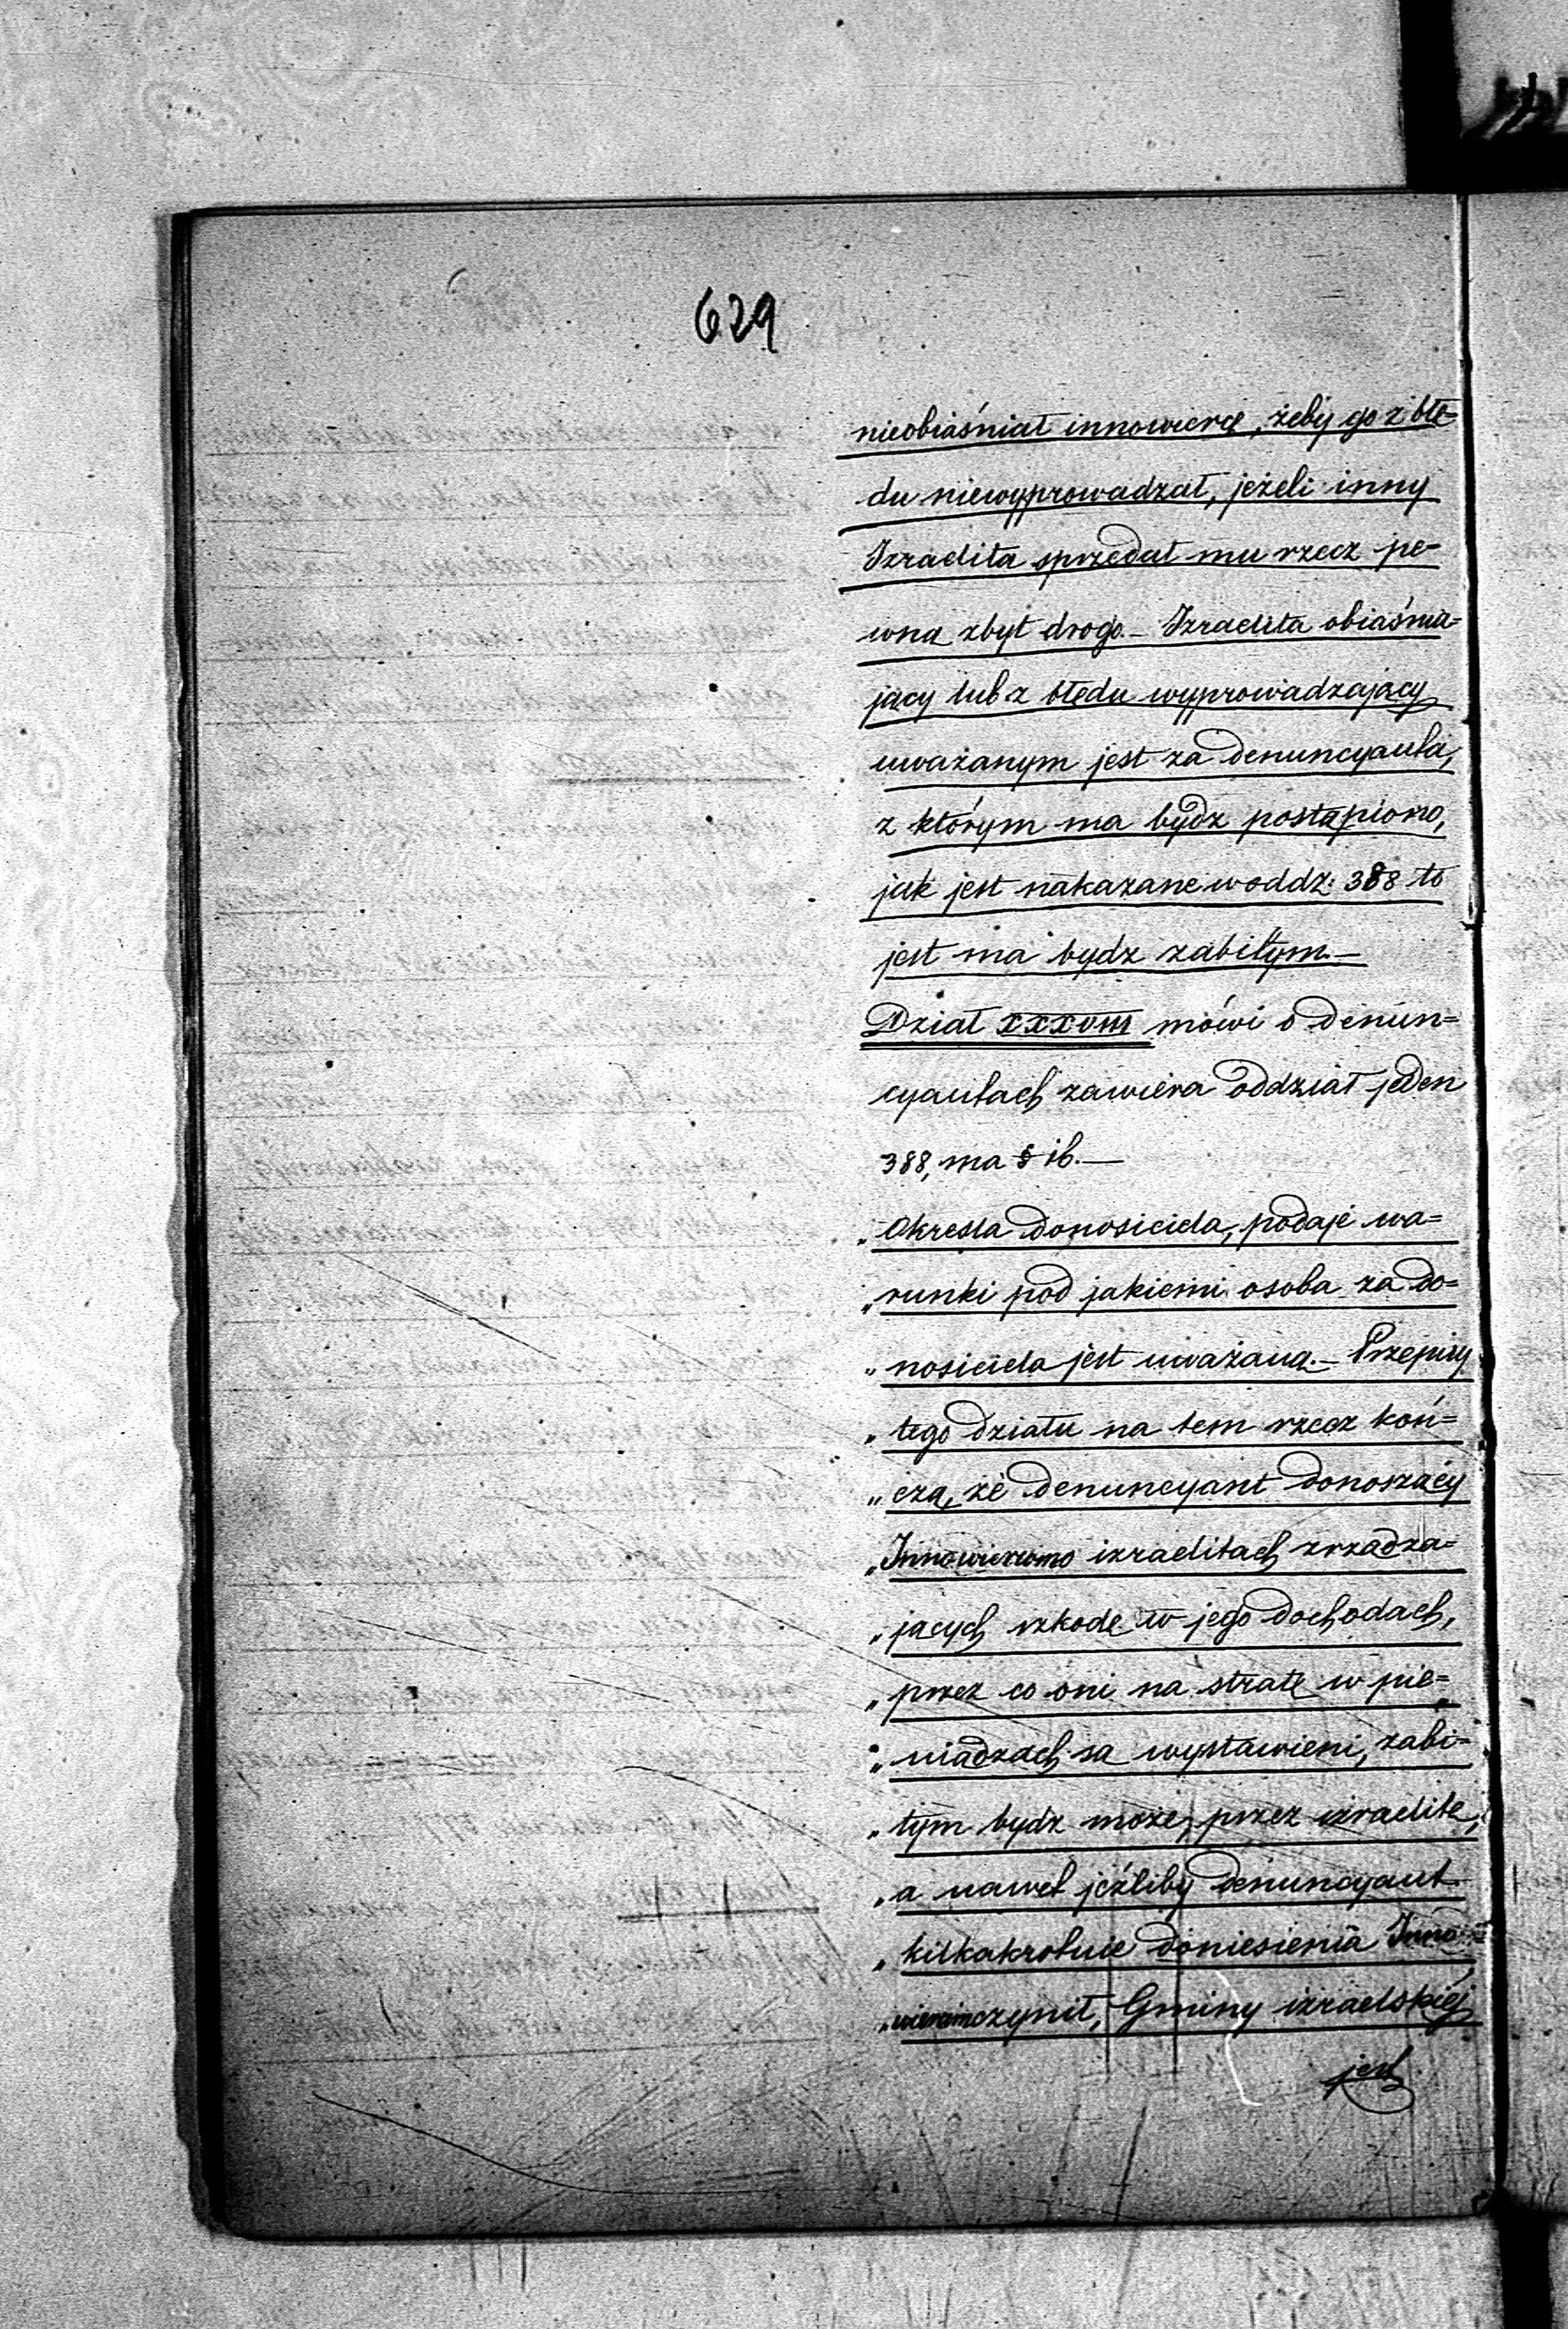 629
nieobiaśniał innowiercę, żeby go z błę=
du niewyprowadzał, jeżeli inny
Izraelita sprzedał mu rzecz pe=
wną zbyt drogo.— Izraelita obiaśnia=
jący lub z błędu wyprowadzający
uważanym jest za denuncyanta,
z którym ma bydz postąpiono,
jak jest nakazane w oddz: 388 to
jest ma bydz zabitym.—
Dział XXXVIII mówi o denun=
cyantach zawiera oddział jeden
388, ma § 16.—
„Okresla donosiciela, podaje wa=
„runki pod jakiemi osoba za do=
„nosiciela jest uważaną.— Przepisy
„tego działu na tem rzecz koń=
„czą, że denuncyant donoszący
„Innowiercom o izraelitach zrządza=
„jących szkodę w jego dochodach,
„przez co oni na stratę w pie=
„niądzach są wystawieni, zabi=
„tym bydz może, przez izraelitę,
„a nawet jeżliby denuncyant
„kilkakrotnie doniesienia Inno=
„wiercom czynił, Gminy izraelskiéj
jest